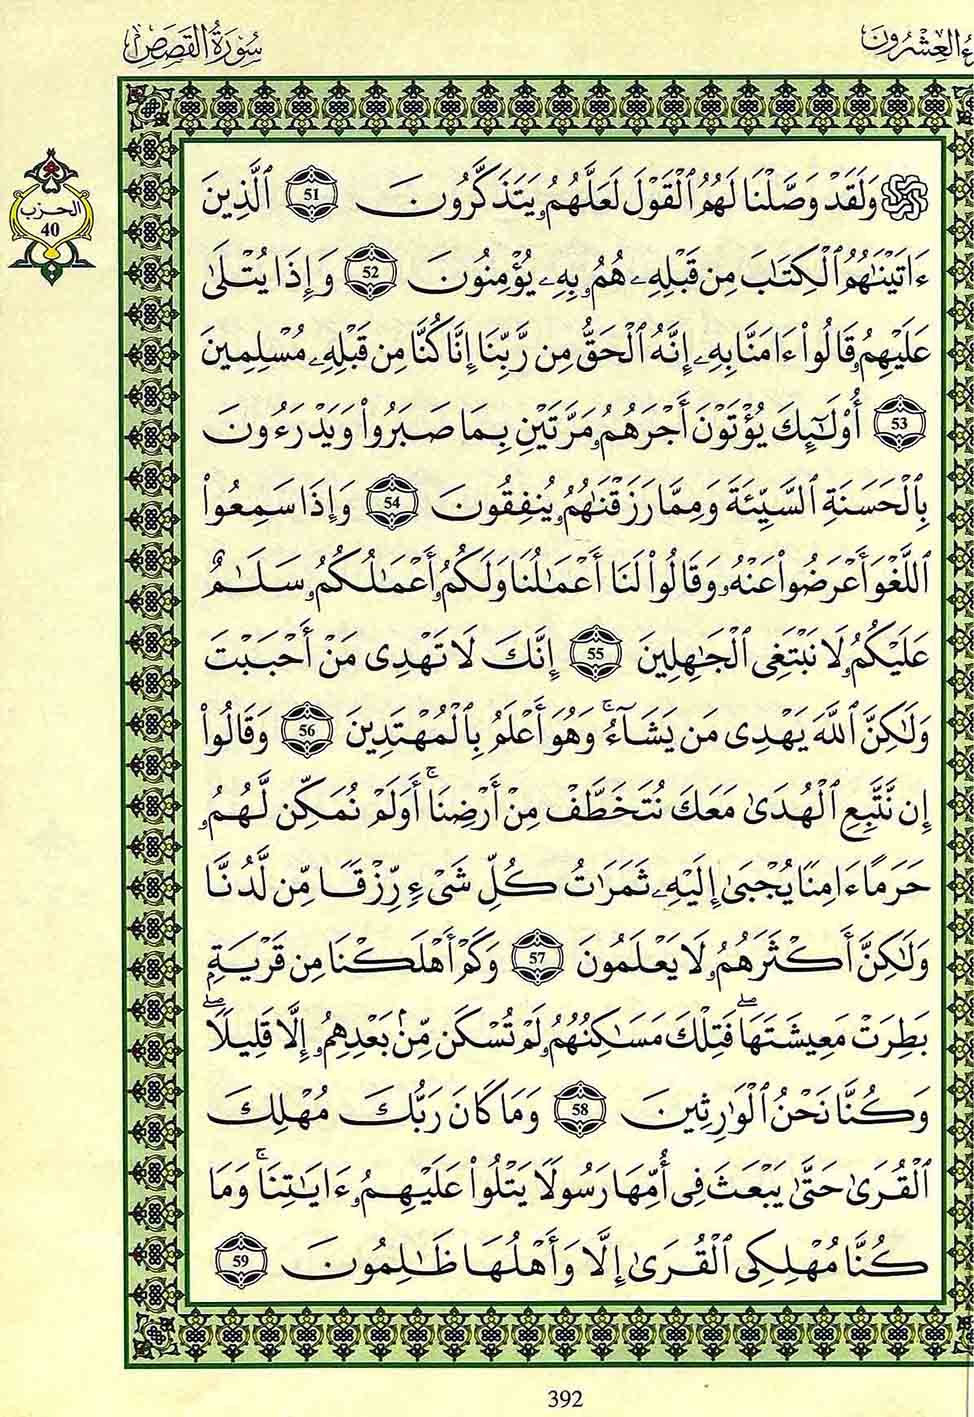 ءُ العِشْرُونَ
سُورَةُ القَصَصِ
الحزب
40
وَلَقَدْ وَصَّلْنَا لَهُمُ ٱلْقَوْلَ لَعَلَّهُمُۥ يَتَذَكَّرُونَ 51 ٱلَّذِينَ
ءَاتَيْنَٰهُمُ ٱلْكِتَٰبَ مِن قَبْلِهِۦ هُمُۥ بِهِۦ يُؤْمِنُونَ 52 وَإِذَا يُتْلَىٰ
عَلَيْهِمُۥ قَالُوا۟ ءَامَنَّا بِهِۦ إِنَّهُ ٱلْحَقُّ مِن رَّبِّنَا إِنَّا كُنَّا مِن قَبْلِهِۦ مُسْلِمِينَ
53 أُو۟لَٰٓئِكَ يُؤْتَوْنَ أَجْرَهُمُۥ مَرَّتَيْنِ بِمَا صَبَرُوا۟ وَيَدْرَءُونَ
بِٱلْحَسَنَةِ ٱلسَّيِّئَةَ وَمِمَّا رَزَقْنَٰهُمُۥ يُنفِقُونَ 54 وَإِذَا سَمِعُوا۟
ٱللَّغْوَ أَعْرَضُوا۟ عَنْهُۥ وَقَالُوا۟ لَنَا أَعْمَٰلُنَا وَلَكُمُۥ أَعْمَٰلُكُمُۥ سَلَٰمٌ
عَلَيْكُمُۥ لَا نَبْتَغِى ٱلْجَٰهِلِينَ 55 إِنَّكَ لَا تَهْدِى مَنْ أَحْبَبْتَ
وَلَٰكِنَّ ٱللَّهَ يَهْدِى مَن يَشَآءُ ۚ وَهُوَ أَعْلَمُ بِٱلْمُهْتَدِينَ 56 وَقَالُوا۟
إِن نَّتَّبِعِ ٱلْهُدَىٰ مَعَكَ نُتَخَطَّفْ مِنْ أَرْضِنَا ۚ أَوَلَمْ نُمَكِّن لَّهُمُۥ
حَرَمًا ءَامِنًا يُجْبَىٰ إِلَيْهِۦ ثَمَرَٰتُ كُلِّ شَىْءٍ رِّزْقًا مِّن لَّدُنَّا
وَلَٰكِنَّ أَكْثَرَهُمُۥ لَا يَعْلَمُونَ 57 وَكَمْ أَهْلَكْنَا مِن قَرْيَةٍ
بَطِرَتْ مَعِيشَتَهَا ۖ فَتِلْكَ مَسَٰكِنُهُمُۥ لَمْ تُسْكَن مِّنۢ بَعْدِهِمُۥ إِلَّا قَلِيلًا ۖ
وَكُنَّا نَحْنُ ٱلْوَٰرِثِينَ 58 وَمَا كَانَ رَبُّكَ مُهْلِكَ
ٱلْقُرَىٰ حَتَّىٰ يَبْعَثَ فِى أُمِّهَا رَسُولًا يَتْلُوا۟ عَلَيْهِمُۥ ءَايَٰتِنَا ۚ وَمَا
كُنَّا مُهْلِكِى ٱلْقُرَىٰ إِلَّا وَأَهْلُهَا ظَٰلِمُونَ 59
392